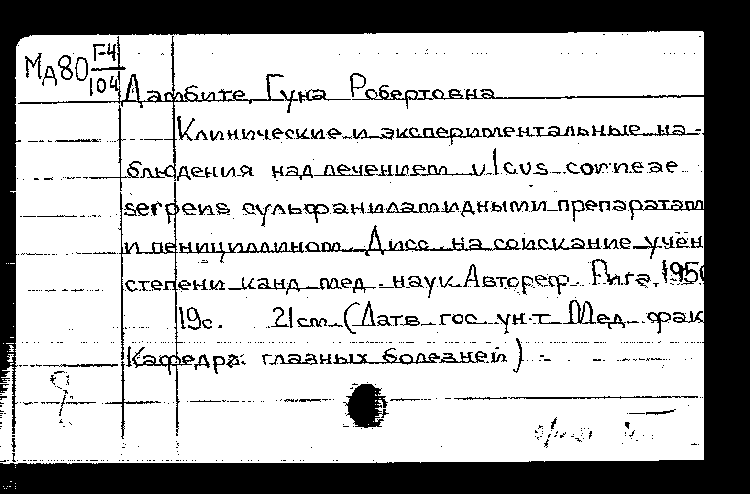 МА80 Г-4
104
Дамбите, Гуна Робертовна
Клинические и экспериментальные на-
блюдения над лечением ulcus corneae
serpens сульфаниламидными препаратам
и пенициллином. Дисс. на соискание учен
степени канд мед. наук. Автореф. Рига, 1950
19с. 21cm (Латв. гос. ун-т Мед. фак
Кафедра глазных болезней)